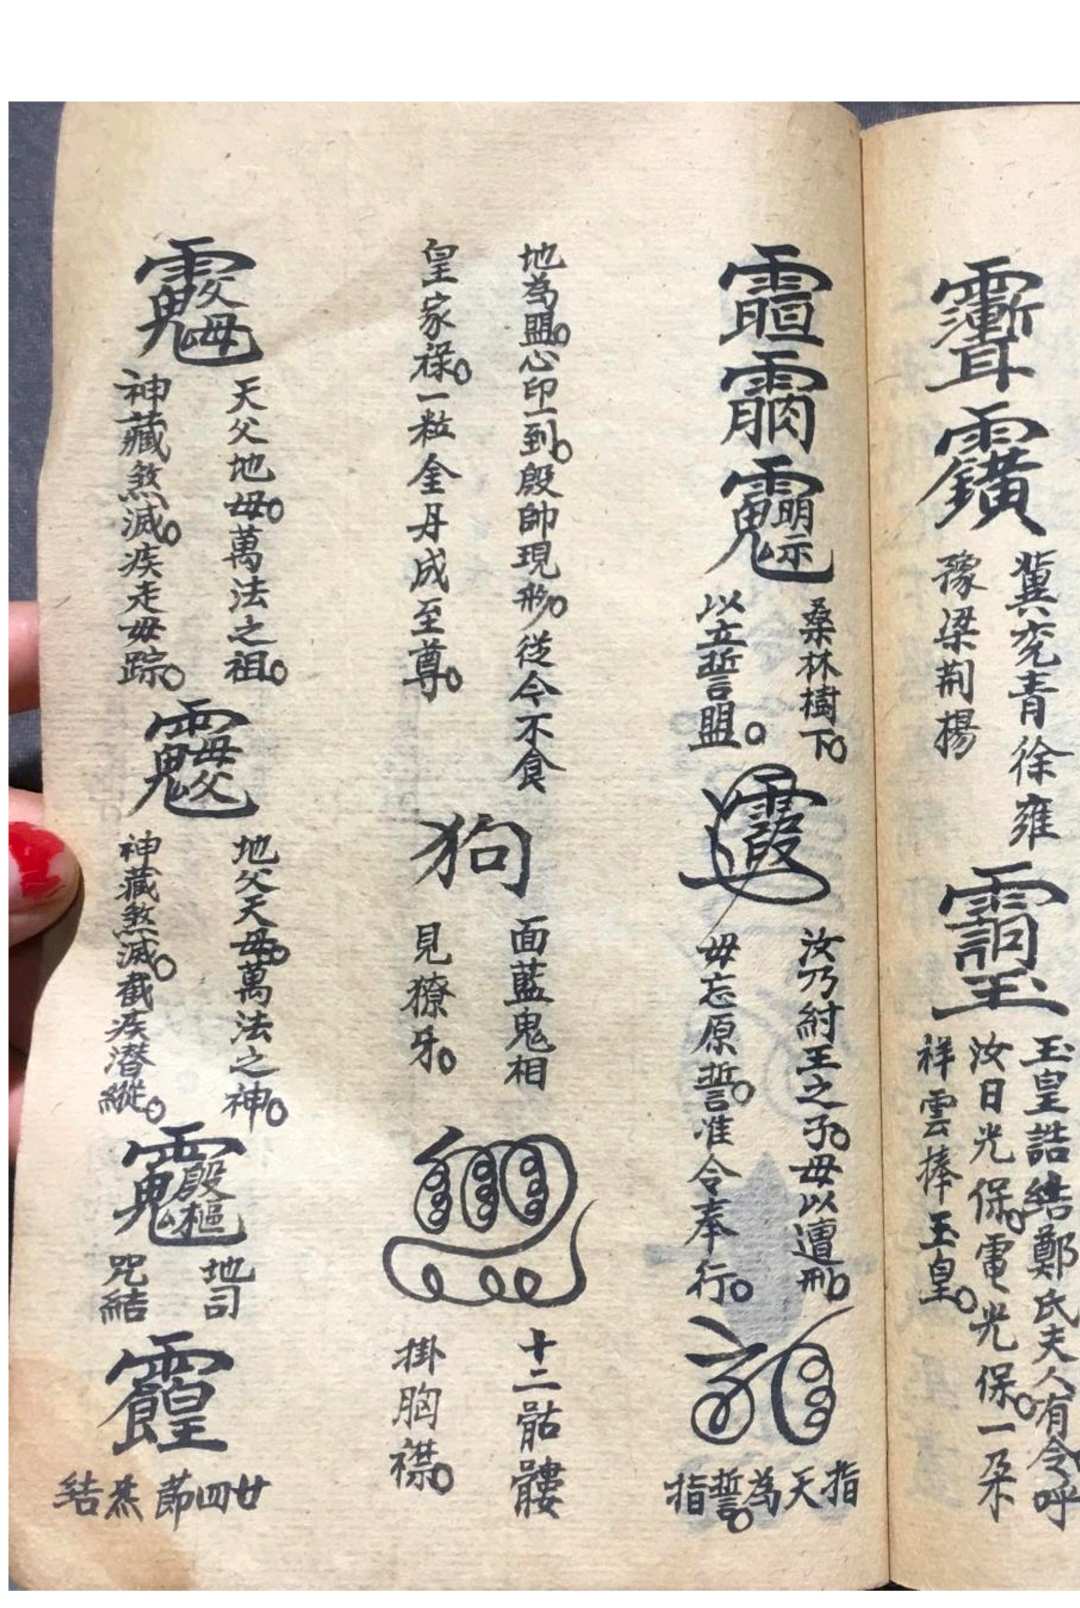 冀兖青徐雍
豫梁荆揚
玉皇誥結鄭氏夫人有令呼
汝日光保。電光保。一朵
祥雲捧玉皇。
桑林樹下。
以立誓盟。
汝乃紂王之子。毋以遭刑。
毋忘原誓。准令奉行。
指天為誓。指
地為盟。心印一到。殷帥現形。從今不食
皇家祿。一粒金丹成至尊。
狗
面藍鬼相
見獠牙。
十二骷髏
掛胸襟。
天父地母。萬法之祖。
神藏煞滅。疾走毋踪。
地父天母。萬法之神。
神藏煞滅。截疾潜縱。
地司
咒結
廿四節炁結